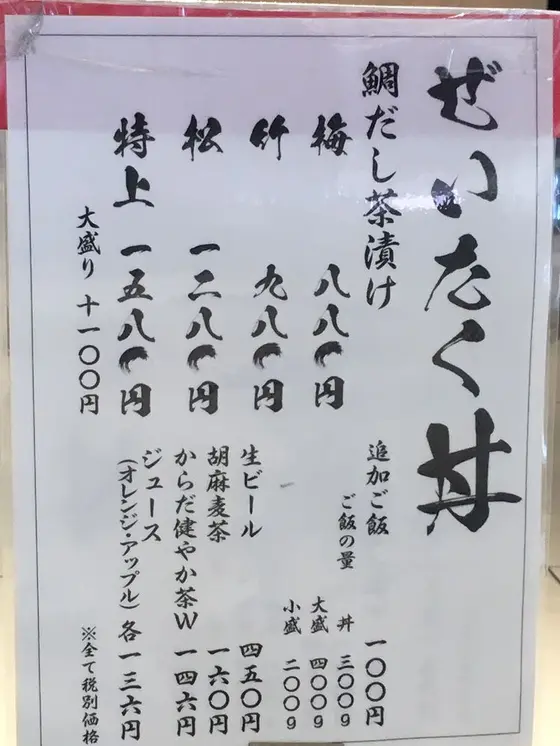 ぜいたく丼
鯛だし茶漬け
梅 八八〇円
竹 九八〇円
松 一二八〇円
特上 一五八〇円
大盛り 十一〇〇円
追加ご飯 一〇〇円
ご飯の量
丼 三〇〇g
大盛 四〇〇g
小盛 二〇〇g
生ビール 四五〇円
胡麻麦茶 一六〇円
からだ健やか茶W 一四六円
ジュース
(オレンジ・アップル) 各一三六円
※全て税別価格